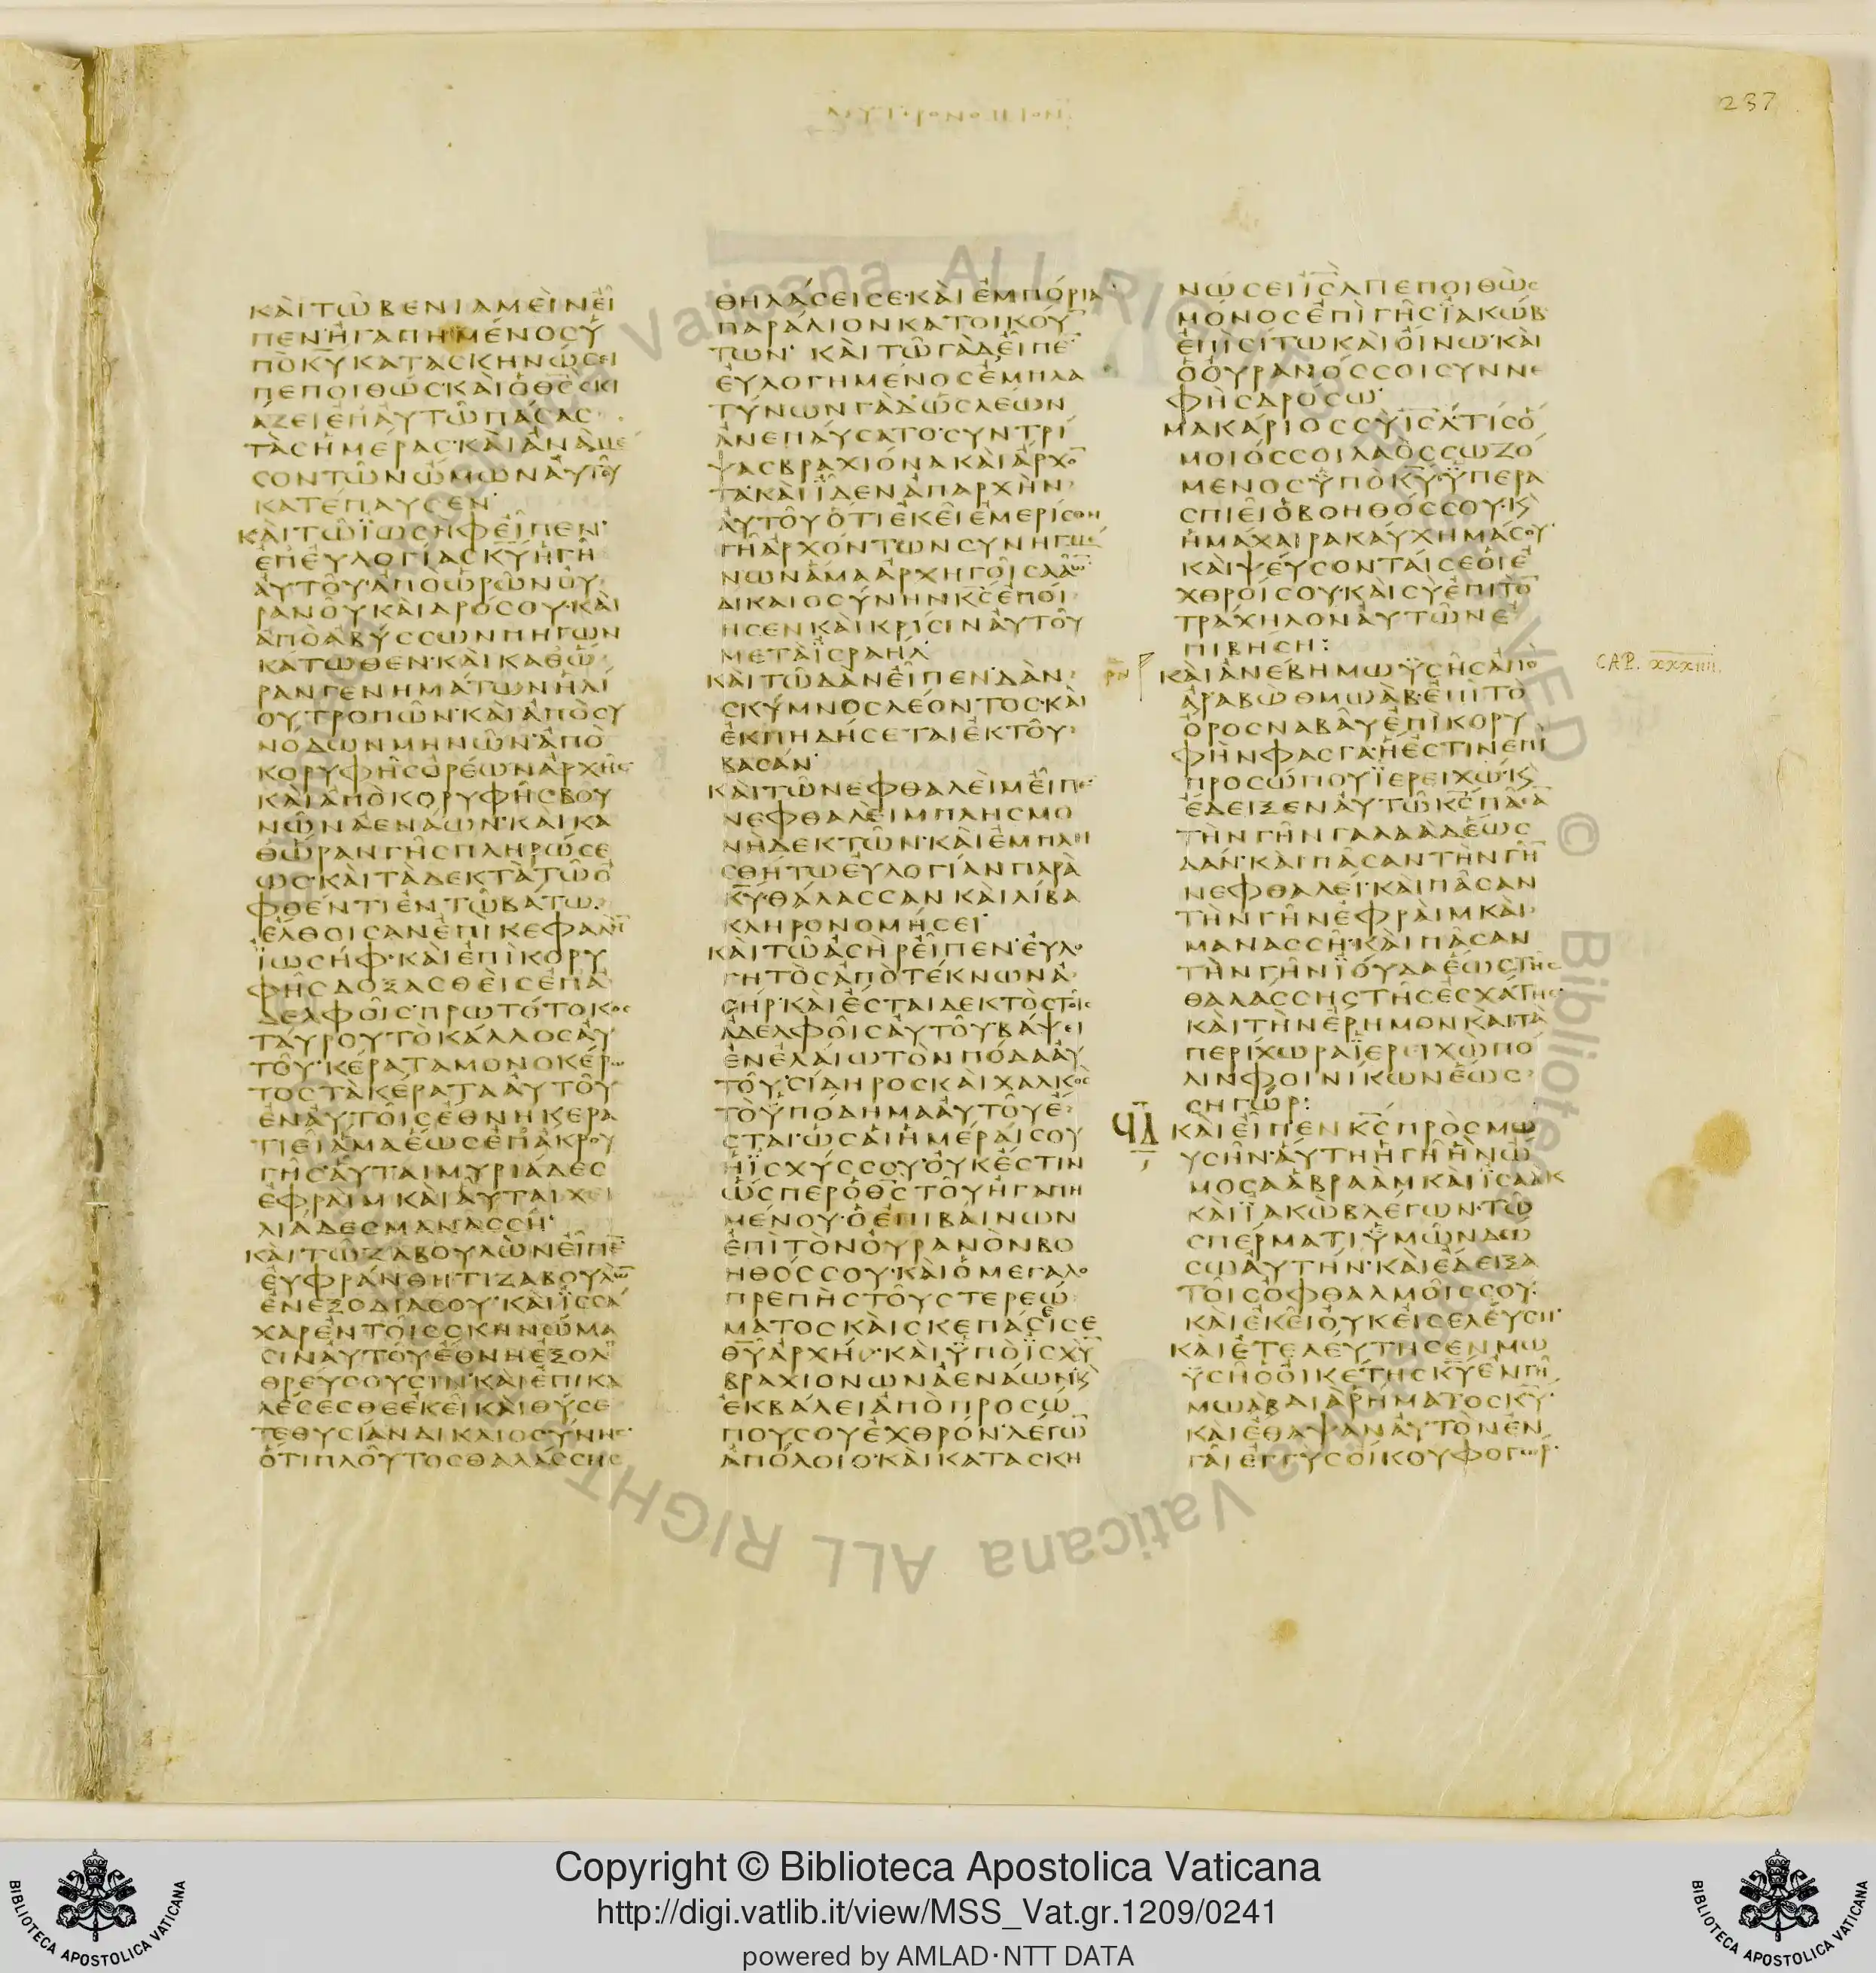 ΔΕΥΤΕΡΟΝΟΜΙΟΝ
237
ΚΑὶΤῶΒΕΝΙΑΜΕὶΝΕἶ
ΠΕΝ·ἨΓΑΠΗΜΈΝΟΣΫ
ΠὸΚ̅Υ̅ΚΑΤΑΣΚΗΝΏΣΕΙ
ΠΕΠΟΙΘΏΣ·ΚΑὶὉΘ̅Σ̅ΣΚΙ
ΆΖΕΙἘΠΑΥΤῶΠΆΣΑΣ
ΤὰΣἩΜΈΡΑΣ·ΚΑὶἈΝὰΜΕ
ΣΟΝΤῶΝὬΜΩΝΑΥΤΟῦ
ΚΑΤΈΠΑΥΣΕΝ·
ΚΑὶΤῶΪΩΣΗΦΕἶΠΕΝ·
ἘΠΕΥΛΟΓΊΑΣΚ̅Υ̅ἩΓῆ
ΑΥΤΟῦ·ἈΠΟὩΡῶΝΟΥ
ΡΑΝΟῦΚΑὶΔΡΌΣΟΥ·ΚΑὶ
ἈΠὸἈΒΎΣΣΩΝΠΗΓῶΝ
ΚΆΤΩΘΕΝ·ΚΑὶΚΑΘΏ
ΡΑΝΓΕΝΗΜΆΤΩΝἩΛΊ
ΟΥΤΡΟΠῶΝ·ΚΑὶἈΠὸΣΥ
ΝΌΔΩΝΜΗΝῶΝ·ἈΠὸ
ΚΟΡΥΦῆΣὈΡΈΩΝἈΡΧῆΣ
ΚΑὶἈΠὸΚΟΡΥΦῆΣΒΟΥ
ΝῶΝΑΕΝΆΩΝ·ΚΑὶΚΑ
ΘΏΡΑΝΓῆΣΠΛΗΡΏΣΕ
ΩΣ·ΚΑὶΤὰΔΕΚΤὰΤῶὈ
ΦΘΈΝΤΙἘΝΤῶΒΆΤΩ·
ἜΛΘΟΙΣΑΝἘΠὶΚΕΦΑΛῊ̅
ΪΩΣΉΦ·ΚΑὶἘΠὶΚΟΡΥ
ΦῆΣΔΟΞΑΣΘΕὶΣἘΠΑ
ΔΕΛΦΟῖΣ·ΠΡΩΤΌΤΟΚΟΣ
ΤΑΎΡΟΥΤὸΚΆΛΛΟΣΑΥ
ΤΟῦ·ΚΈΡΑΤΑΜΟΝΟΚΈΡΩ
ΤΟΣΤὰΚΈΡΑΤΑΑΥΤΟῦ
ἘΝΑΥΤΟῖΣἜΘΝΗΚΕΡΑ
ΤΙΕῖἍΜΑἝΩΣἘΠΆΚΡΟΥ
ΓῆΣ·ΑὟΤΑΙΜΥΡΙΆΔΕΣ
ἘΦΡΑὶΜΚΑὶΑὟΤΑΙΧΙ
ΛΙΆΔΕΣΜΑΝΑΣΣΉ·
ΚΑὶΤῶΖΑΒΟΥΛῺΝΕἶΠΕ̅
ΕΥΦΡΆΝΘΗΤΙΖΑΒΟΥΛῺ̅
ἘΝΕΞΟΔΙΑΣΟΥ·ΚΑὶΪΣΣΆ
ΧΑΡἘΝΤΟῖΣΣΚΗΝΏΜΑ
ΣΙΝΑΥΤΟῦ·ἜΘΝΗἘΞΟΛΕ
ΘΡΕΎΣΟΥΣΙΝ·ΚΑὶἘΠΙΚΑ
ΛΈΣΕΣΘΕἘΚΕῖΚΑὶΘΎΣΕ
ΤΕΘΥΣΊΑΝΔΙΚΑΙΟΣΎΝΗΣ·
ὍΤΙΠΛΟῦΤΟΣΘΑΛΆΣΣΗΣ
ΘΗΛΆΣΕΙΣΕ·ΚΑὶἘΜΠΌΡΙΑ
ΠΑΡΆΛΙΟΝΚΑΤΟΙΚΟΎ̅
ΤΩΝ·ΚΑὶΤῶΓᾺΔΕἶΠΕ̅
ΕΥΛΟΓΗΜΈΝΟΣἘΜΠΛΑ
ΤΎΝΩΝΓᾺΔ·ὩΣΛΈΩΝ
ἈΝΕΠΑΎΣΑΤΟ·ΣΥΝΤΡΊ
ΨΑΣΒΡΑΧΙΌΝΑΚΑὶἌΡΧΟ̅
ΤΑ·ΚΑὶΪΔΕΝἈΠΑΡΧῊΝ
ΑΥΤΟῦὍΤΙἘΚΕῖἘΜΕΡΊΣΘΗ
ΓῆἈΡΧΌΝΤΩΝΣΥΝΗΓΜΈ
ΝΩΝἍΜΑἈΡΧΗΓΟῖΣΛΑῶ̅
ΔΙΚΑΙΟΣΎΝΗΝΚ̅Σ̅ἘΠΟΊ
ΗΣΕΝΚΑὶΚΡΊΣΙΝΑΥΤΟῦ
ΜΕΤὰΪΣΡΑΉΛ·
ΚΑὶΤῶΔᾺΝΕἶΠΕΝ·ΔᾺΝ
ΣΚΎΜΝΟΣΛΈΟΝΤΟΣ·ΚΑὶ
ἘΚΠΗΔΉΣΕΤΑΙἘΚΤΟῦ
ΒΑΣΆΝ·
ΚΑὶΤῶΝΕΦΘΑΛΕὶΜΕἶΠΕ̅
ΝΕΦΘΑΛΕὶΜΠΛΗΣΜΟ
ΝῊΔΕΚΤῶΝ·ΚΑὶἘΜΠΛΗ
ΣΘΉΤΩΕΥΛΟΓΊΑΝΠΑΡᾺ
Κ̅Υ̅·ΘΆΛΑΣΣΑΝΚΑὶΛΊΒΑ
ΚΛΗΡΟΝΟΜΉΣΕΙ·
ΚΑὶΤῶἈΣῊΡΕἶΠΕΝ·ΕΥΛΟ
ΓΗΤὸΣἈΠὸΤΈΚΝΩΝἈ
ΣΉΡ·ΚΑὶἜΣΤΑΙΔΕΚΤὸΣΤΟῖΣ
ἈΔΕΛΦΟῖΣΑΥΤΟῦ·ΒΆΨΕΙ
ἘΝἘΛΑΊΩΤὸΝΠΌΔΑΑΥ
ΤΟῦ·ΣΊΔΗΡΟΣΚΑὶΧΑΛΚὸΣ
ΤὸΫΠΌΔΗΜΑΑΥΤΟῦἜ
ΣΤΑΙ·ὩΣΑἱἩΜΈΡΑΙΣΟΥ
ἩΪΣΧΎΣΣΟΥ·ΟΥΚἜΣΤΙΝ
ὭΣΠΕΡὉΘ̅Σ̅ΤΟῦἨΓΑΠΗ
ΜΈΝΟΥ·ὉἘΠΙΒΑΊΝΩΝ
ἘΠὶΤὸΝΟΥΡΑΝὸΝΒΟ
ΗΘΌΣΣΟΥ·ΚΑὶὉΜΕΓΑΛΟ
ΠΡΕΠῊΣΤΟῦΣΤΕΡΕΏ
ΜΑΤΟΣΚΑὶΣΚΕΠΆΣΕΙΣΕ
Θ̅Υ̅ἈΡΧΉΣ·ΚΑὶΫΠὸΪΣΧῪ̅
ΒΡΑΧΙΌΝΩΝΑΕΝΆΩΝ·Κ
ἘΚΒΆΛΕΙἈΠὸΠΡΟΣΏ
ΠΟΥΣΟΥἘΧΘΡΌΝ·ΛΈΓΩ̅
ἈΠΌΛΟΙΟ·ΚΑὶΚΑΤΑΣΚΗ
ΝΏΣΕΙΙ̅Σ̅Λ̅ΠΕΠΟΙΘῺΣ
ΜΌΝΟΣἘΠὶΓῆΣΪΑΚΏΒ·
ἘΠὶΣΊΤΩΚΑὶΟἼΝΩ·ΚΑὶ
ὉΟΥΡΑΝΌΣΣΟΙΣΥΝΝΕ
ΦῊΣΔΡΌΣΩ·
ΜΑΚΆΡΙΟΣΣῪΙ̅Σ̅Λ̅·ΤΊΣὍ
ΜΟΙΌΣΣΟΙΛΑὸΣΣΩΖΌ
ΜΕΝΟΣΫΠὸΚ̅Υ̅·ΫΠΕΡΑ
ΣΠΙΕῖὉΒΟΗΘΌΣΣΟΥ·Κ
ἩΜΆΧΑΙΡΑΚΑΎΧΗΜΆΣΟΥ·
ΚΑὶΨΕΎΣΟΝΤΑΊΣΕΟἱἘ
ΧΘΡΟΊΣΟΥ·ΚΑὶΣῪἘΠὶΤὸ̅
ΤΡΆΧΗΛΟΝΑΥΤῶΝἘ
ΠΙΒΉΣΗ:
ΚΑὶἈΝΈΒΗΜΩΫΣῆΣἈΠὸ
ἈΡΑΒῺΘΜΩᾺΒ·ἘΠὶΤὸ
ὌΡΟΣΝΑΒΑῦἘΠὶΚΟΡΥ
ΦῊΝΦΑΣΓΆ·ἭἘΣΤΙΝἘΠὶ
ΠΡΟΣΏΠΟΥΪΕΡΕΙΧΏ·Κ
ἜΔΕΙΞΕΝΑΥΤῶΚ̅Σ̅ΠΆΣΑ̅
ΤῊΝΓῆΝΓΑΛΑᾺΔἝΩΣ
ΔΆΝ·ΚΑὶΠᾶΣΑΝΤῊΝΓῆ̅
ΝΕΦΘΑΛΕΊ·ΚΑὶΠᾶΣΑΝ
ΤῊΝΓῆΝἘΦΡΑὶΜΚΑὶ
ΜΑΝΑΣΣῆ·ΚΑὶΠᾶΣΑΝ
ΤῊΝΓῆΝΪΟΎΔΑἝΩΣΤῆΣ
ΘΑΛΆΣΣΗΣΤῆΣἘΣΧΆΤΗΣ·
ΚΑὶΤῊΝἜΡΗΜΟΝΚΑὶΤᾺ
ΠΕΡΊΧΩΡΑΪΕΡΕΙΧῺΠΌ
ΛΙΝΦΟΙΝΊΚΩΝἝΩΣ
ΣΗΓΏΡ:
CAP. XXXIIII.
ϞΔ
ΚΑὶΕἶΠΕΝΚ̅Σ̅ΠΡὸΣΜΩ
ΥΣῆΝ·ΑὝΤΗἩΓῆἫΝὬ
ΜΟΣΑἈΒΡΑᾺΜΚΑὶΪΣΑΑΚ
ΚΑὶΪΑΚῺΒΛΈΓΩΝ·Τῶ
ΣΠΈΡΜΑΤΙΫΜῶΝΔΏ
ΣΩΑΥΤΉΝ·ΚΑὶἜΔΕΙΞΑ
ΤΟῖΣὈΦΘΑΛΜΟῖΣΣΟΥ·
ΚΑὶἘΚΕῖΟΥΚΕἸΣΕΛΕΎΣΗ·
ΚΑὶἘΤΕΛΕΎΤΗΣΕΝΜΩ
ΫΣῆΣὉΟἸΚΈΤΗΣΚ̅Υ̅ἘΝΓῆ
ΜΩᾺΒΔΙᾺΡΉΜΑΤΟΣΚ̅Υ̅·
ΚΑὶἜΘΑΨΑΝΑΥΤὸΝἘΝ
ΓΑὶἘΓΓῪΣΟἼΚΟΥΦΟΓΏΡ·
Copyright © Biblioteca Apostolica Vaticana
http://digi.vatlib.it/view/MSS_Vat.gr.1209/0241
powered by AMLAD·NTT DATA
BIBLIOTECA APOSTOLICA VATICANA
BIBLIOTECA APOSTOLICA VATICANA